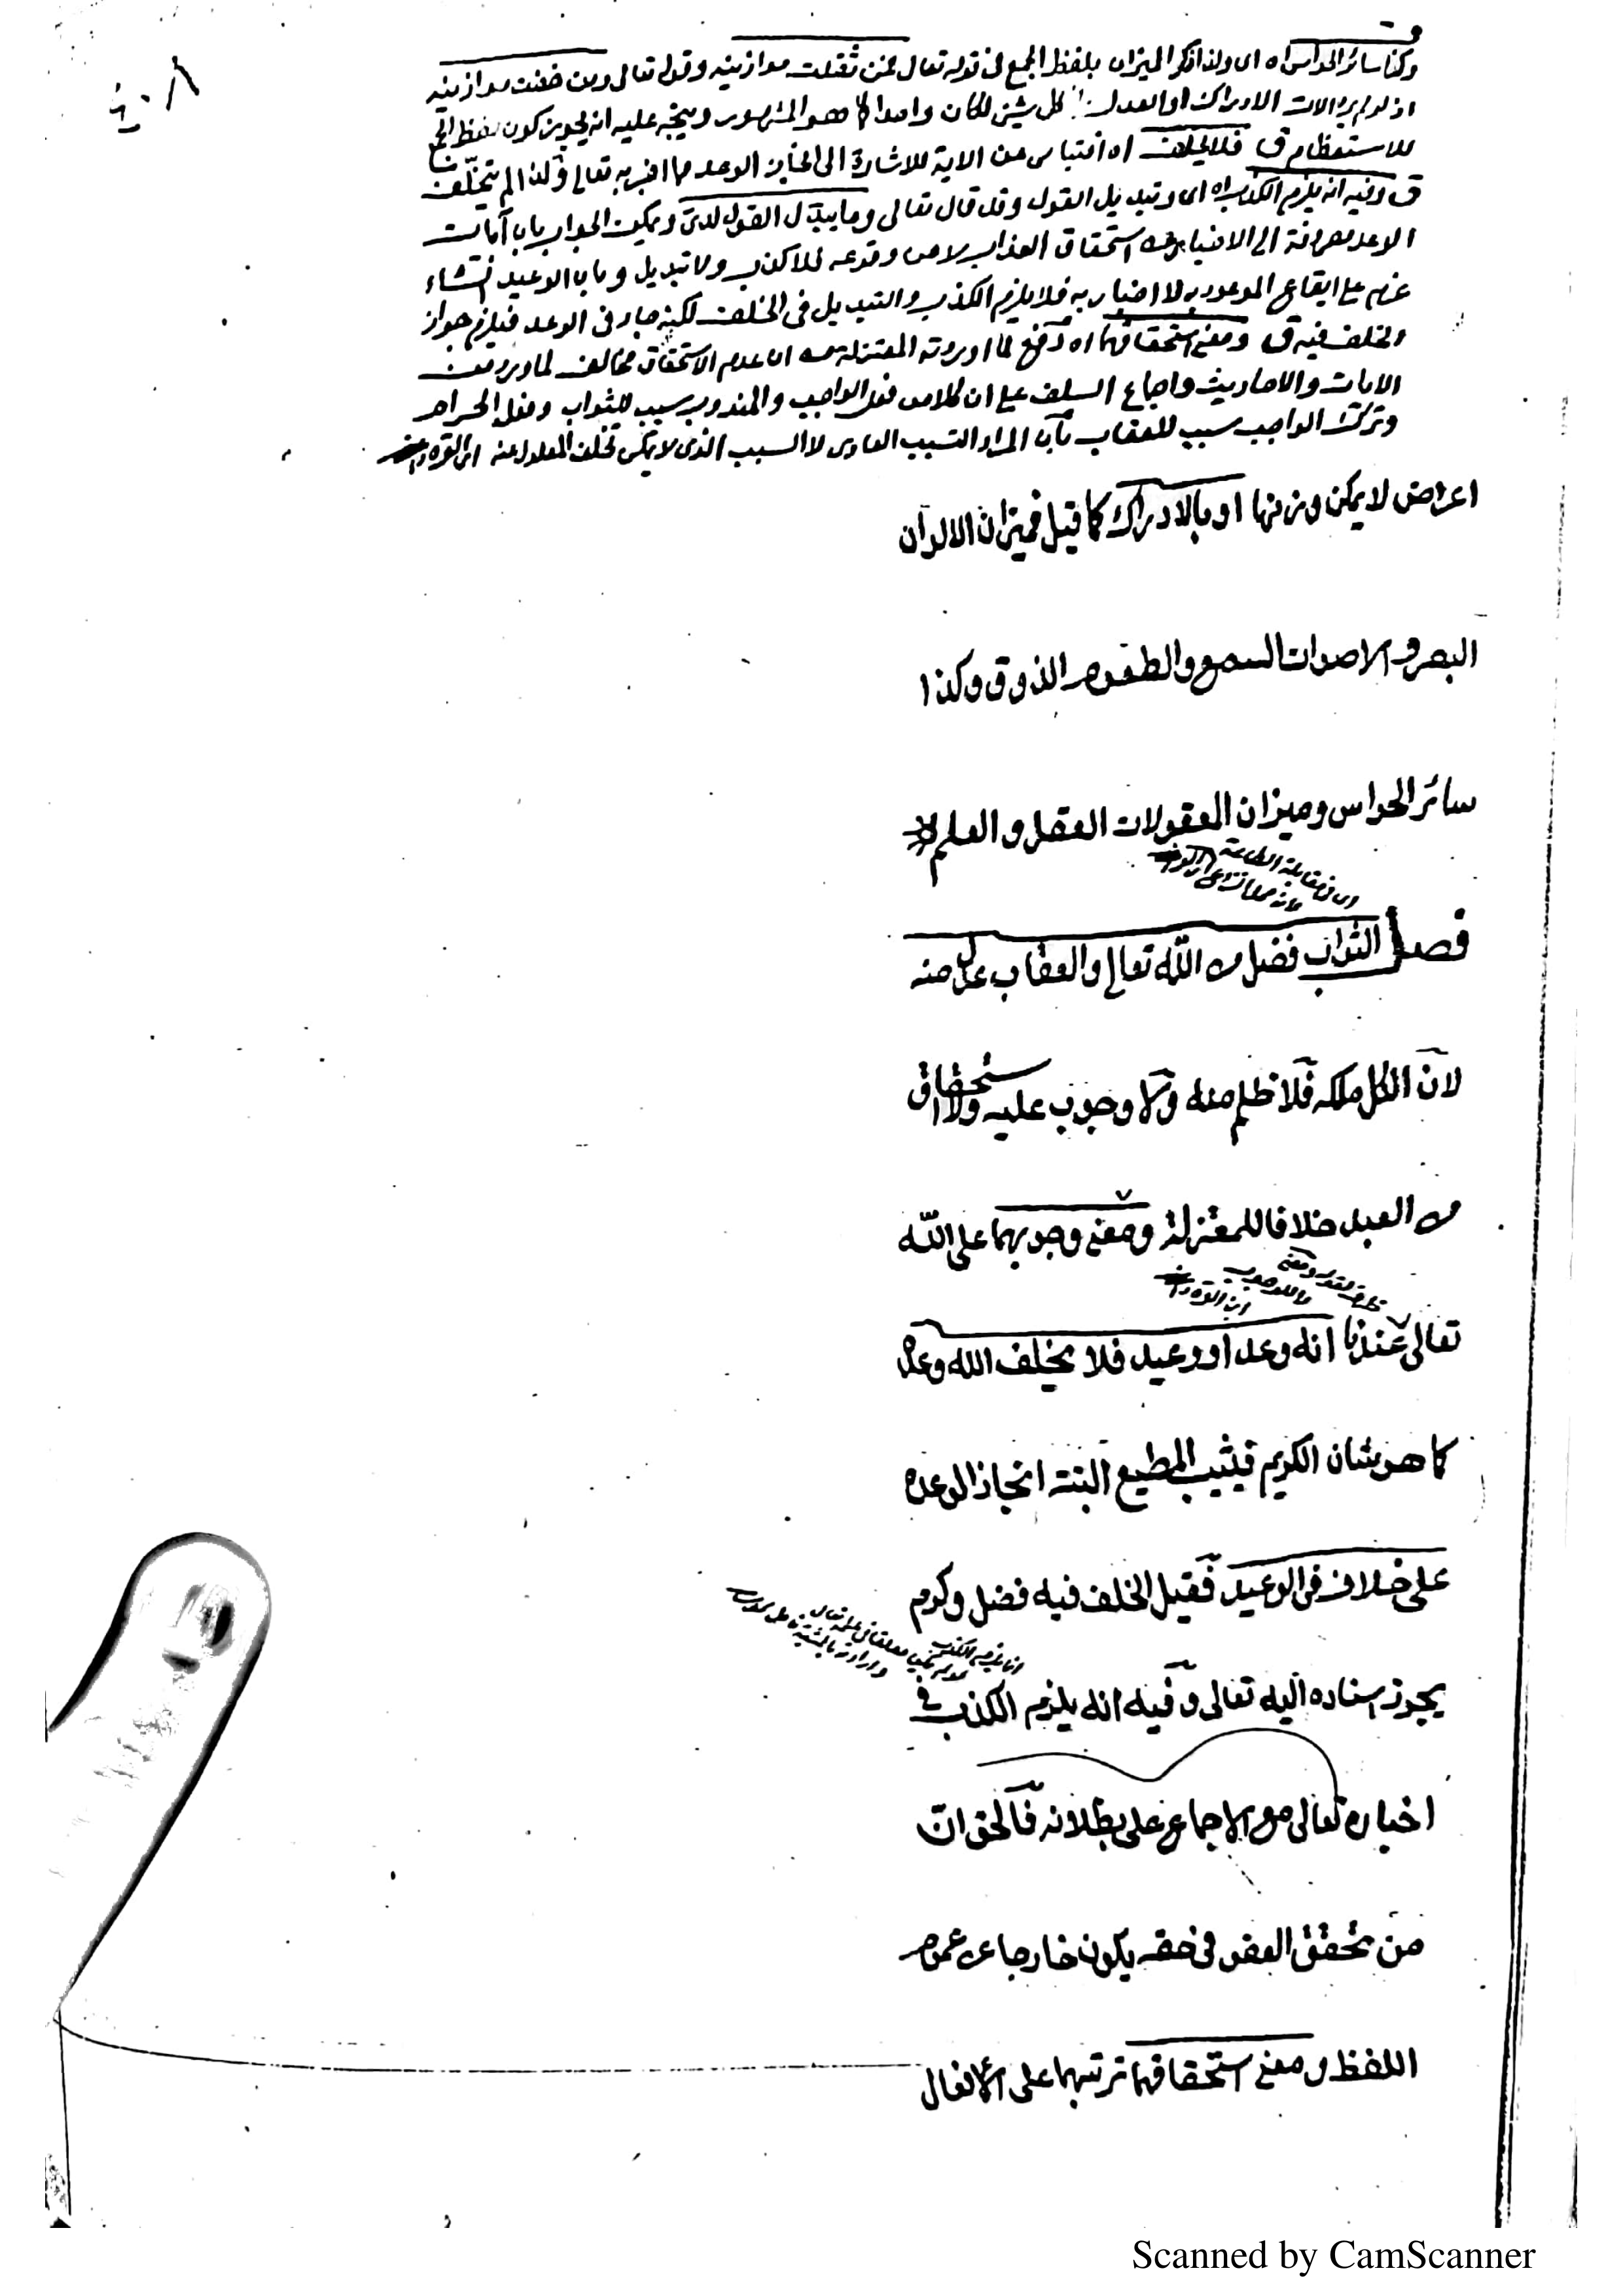 وكذا سائر الحواس اه اى ولذا ذكر الميزان بلفظ الجمع فى قوله تعالى فمن ثقلت موازينه وقوله تعالى ومن خفت موازينه
اذ لو لم يرد الات الادراك او العدل كل شيئ لكان واحدا كما هو المشهور ويتجه عليه انه يجوز كون لفظ الجمع
للاستعظام ق فلا يخلف اه اقتباس من الاية للاشارة الى الوعد مما اخبر به تعالى ولذا لم يتخلف
ق وفيه انه يلزم الكذب اه اى وتبديل القول وقد قال تعالى وما يبدل القول لدى ويمكن الجواب بان آيات
الوعد استحقاق العذاب لا عن وقوعه فلا كذب ولا تبديل وبان الوعيد انشاء
عزم على ايقاع الموعود به لا اخبار به فلا يلزم الكذب والتبديل فى الخلف لكنه جار فى الوعد فيلزم جواز
الخلف فيه ق ومعنى استحقاقهما اه دفع لما اورده المعتزلة من ان عدم الاستحقاق مخالف لما ورد من
الايات والاحاديث واجماع السلف على ان كلا من فعل الواجب والمندوب سبب للثواب وفعل الحرام
وترك الواجب سبب للعقاب بأن المراد السبب العادى لا السبب الذى لا يمكن تخلف المعلول عنه ابن القره داغى
اعراض لا يمكن وزنها او بالادراك كما قيل فميزان الالوان
البصر والاصوات السمع والطعوم الذوق وكذا
سائر الحواس وميزان المعقولات العقل والعلم
اى فى مقابلة الطاعة
فصل الثواب فضل من الله تعالى والعقاب عدل منه
لان الكل ملكه فلا ظلم منه ولا وجوب عليه ولا استحقاق
من العبد خلافا للمعتزلة ومعنى وجوبهما على الله
ابن القره داغى
تعالى عندنا انه وعد او وعيد فلا يخلف الله وعده
كما هو شان الكريم فيثيب المطيع البتة انجازا لوعده
على خلاف فى الوعيد فقيل الخلف فيه فضل وكرم
يجوز اسناده اليه تعالى وفيه انه يلزم الكذب فى
اخباره تعالى مع الاجماع على بطلانه فالحق ان
من تحقق العفو فى حقه يكون خارجا عن عموم
اللفظ ومعنى استحقاقهما ترتبهما على الافعال
Scanned by CamScanner